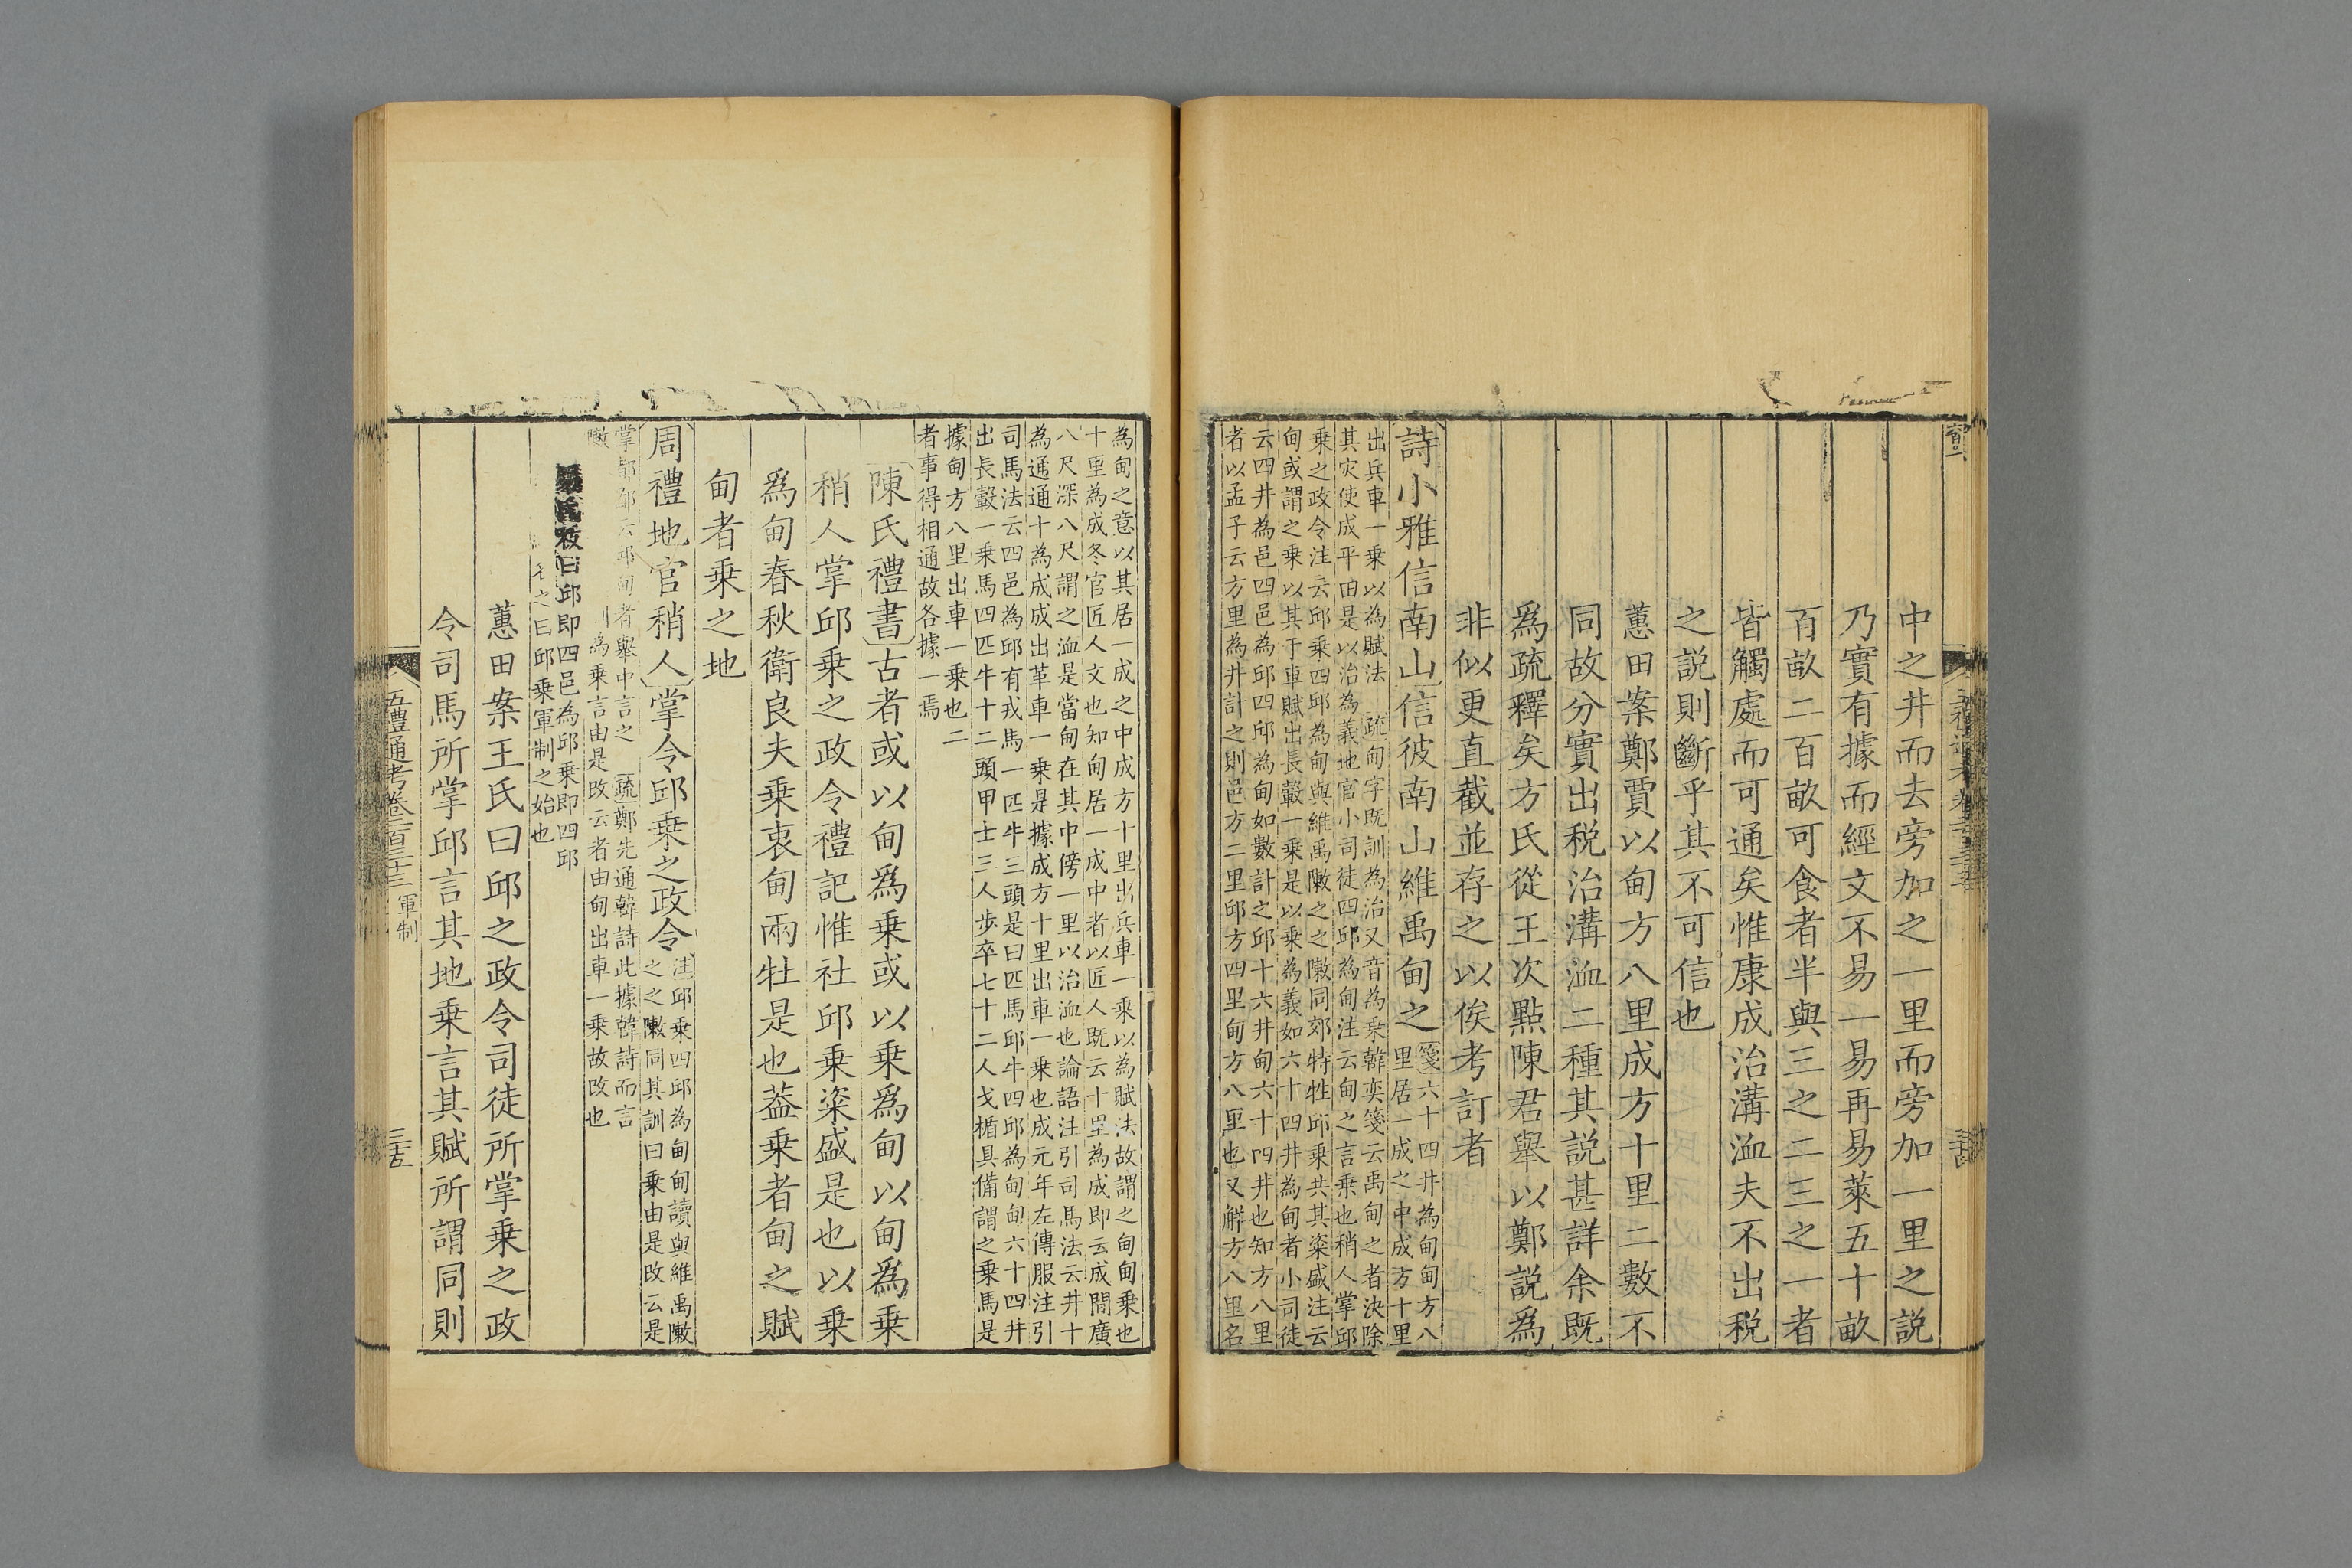 中之井而去旁加之一里而旁加一里之説
乃實有據而經文不易一易再易萊五十畝
百畝二百畝可食者半與三之二三之一者
皆觸處而可通矣惟康成治溝洫夫不出税
之説則斷乎其不可信也
蕙田案鄭賈以甸方八里成方十里二數不
同故分實出税治溝洫二種其説甚詳余既
爲疏釋矣方氏從王次點陳君舉以鄭説爲
非似更直截並存之以俟考訂者
詩小雅信南山信彼南山維禹甸之
箋六十四井為甸甸方八
里居一成之中成方十里
出兵車一乗以為賦法 疏甸字既訓為治又音為乗韓奕箋云禹甸之者決除
其灾使成平田是以治為義地官小司徒四邱為甸注云甸之言乗也稍人掌邱
乗之政令注云邱乗四邱為甸與維禹敶之之敶同郊特牲邱乗共其粢盛注云
甸或謂之乗以其于車賦出長轂一乗是以乗為義如六十四井為甸者小司徒
云四井為邑四邑為邱四邱為甸如數計之邱十六井甸六十四井也知方八里
者以孟子云方里為井計之則邑方二里邱方四里甸方八里也又解方八里名
為甸之意以其居一成之中成方十里出兵車一乗以為賦法故謂之甸甸乗也
十里為成冬官匠人文也知甸居一成中者以匠人既云十里為成即云成間廣
八尺深八尺謂之洫是當甸在其中傍一里以治洫也論語注引司馬法云井十
為通通十為成成出革車一乗是據成方十里出車一乗也成元年左傳服注引
司馬法云四邑為邱有戎馬一匹牛三頭是曰匹馬邱牛四邱為甸甸六十四井
出長轂一乗馬四匹牛十二頭甲士三人歩卒七十二人戈楯具備謂之乗馬是
據甸方八里出車一乗也二
者事得相通故各據一焉
陳氏禮書古者或以甸爲乗或以乗爲甸以甸爲乗
稍人掌邱乗之政令禮記惟社邱乗粢盛是也以乗
爲甸春秋衛良夫乗衷甸兩牡是也葢乗者甸之賦
甸者乗之地
周禮地官稍人掌令邱乗之政令
注邱乗四邱為甸甸讀與維禹敶
之之敶同其訓曰乗由是改云是
掌都鄙邱云邱甸者舉中言之 疏鄭先通韓詩此據韓詩而言
敶 訓為乗言由是改云者由甸出車一乗故改也
易氏祓曰邱即四邑為邱乗即四邱
之曰邱乗軍制之始也
蕙田案王氏曰邱之政令司徒所掌乗之政
令司馬所掌邱言其地乗言其賦所謂同則
五禮通考卷二百三十三 軍制
三十五